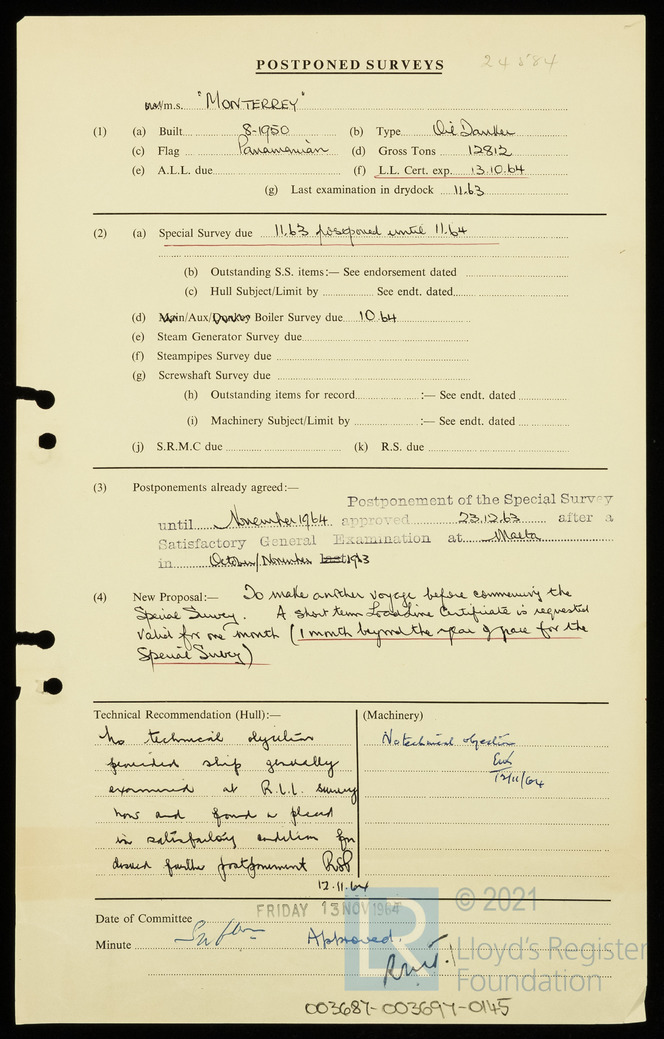 POSTPONED SURVEYS
24584
m.s. "MONTERREY"
(1) (a) Built 8-1950 (b) Type Oil Tanker
(c) Flag Panamanian (d) Gross Tons 12812
(e) A.L.L. due (f) L.L. Cert. exp. 13.10.64
(g) Last examination in drydock 11.63
(2) (a) Special Survey due 11.63 postponed until 11.64
(b) Outstanding S.S. items:— See endorsement dated
(c) Hull Subject/Limit by See endt. dated
(d) Main/Aux/Donkey Boiler Survey due 10.64
(e) Steam Generator Survey due
(f) Steampipes Survey due
(g) Screwshaft Survey due
(h) Outstanding items for record :— See endt. dated
(i) Machinery Subject/Limit by :— See endt. dated
(j) S.R.M.C due (k) R.S. due
(3) Postponements already agreed:—
Postponement of the Special Survey
until November 1964 approved 23.12.63 after a
Satisfactory General Examination at Malta
in October/November 1963
(4) New Proposal:— To make another voyage before commencing the
Special Survey. A short term Load Line Certificate is requested
valid for one month (1 month beyond the year of grace for the
Special Survey)
Technical Recommendation (Hull):— (Machinery)
No technical objection
provided ship generally
examined at R.L.L. survey
now and found or placed
in satisfactory condition for
desired further postponement RSP
12.11.64
No technical objection
12/11/64
Date of Committee FRIDAY 13 NOV 1964
Minute Approved.
LR
© 2021
Lloyd's Register
Foundation
003687-003697-0145